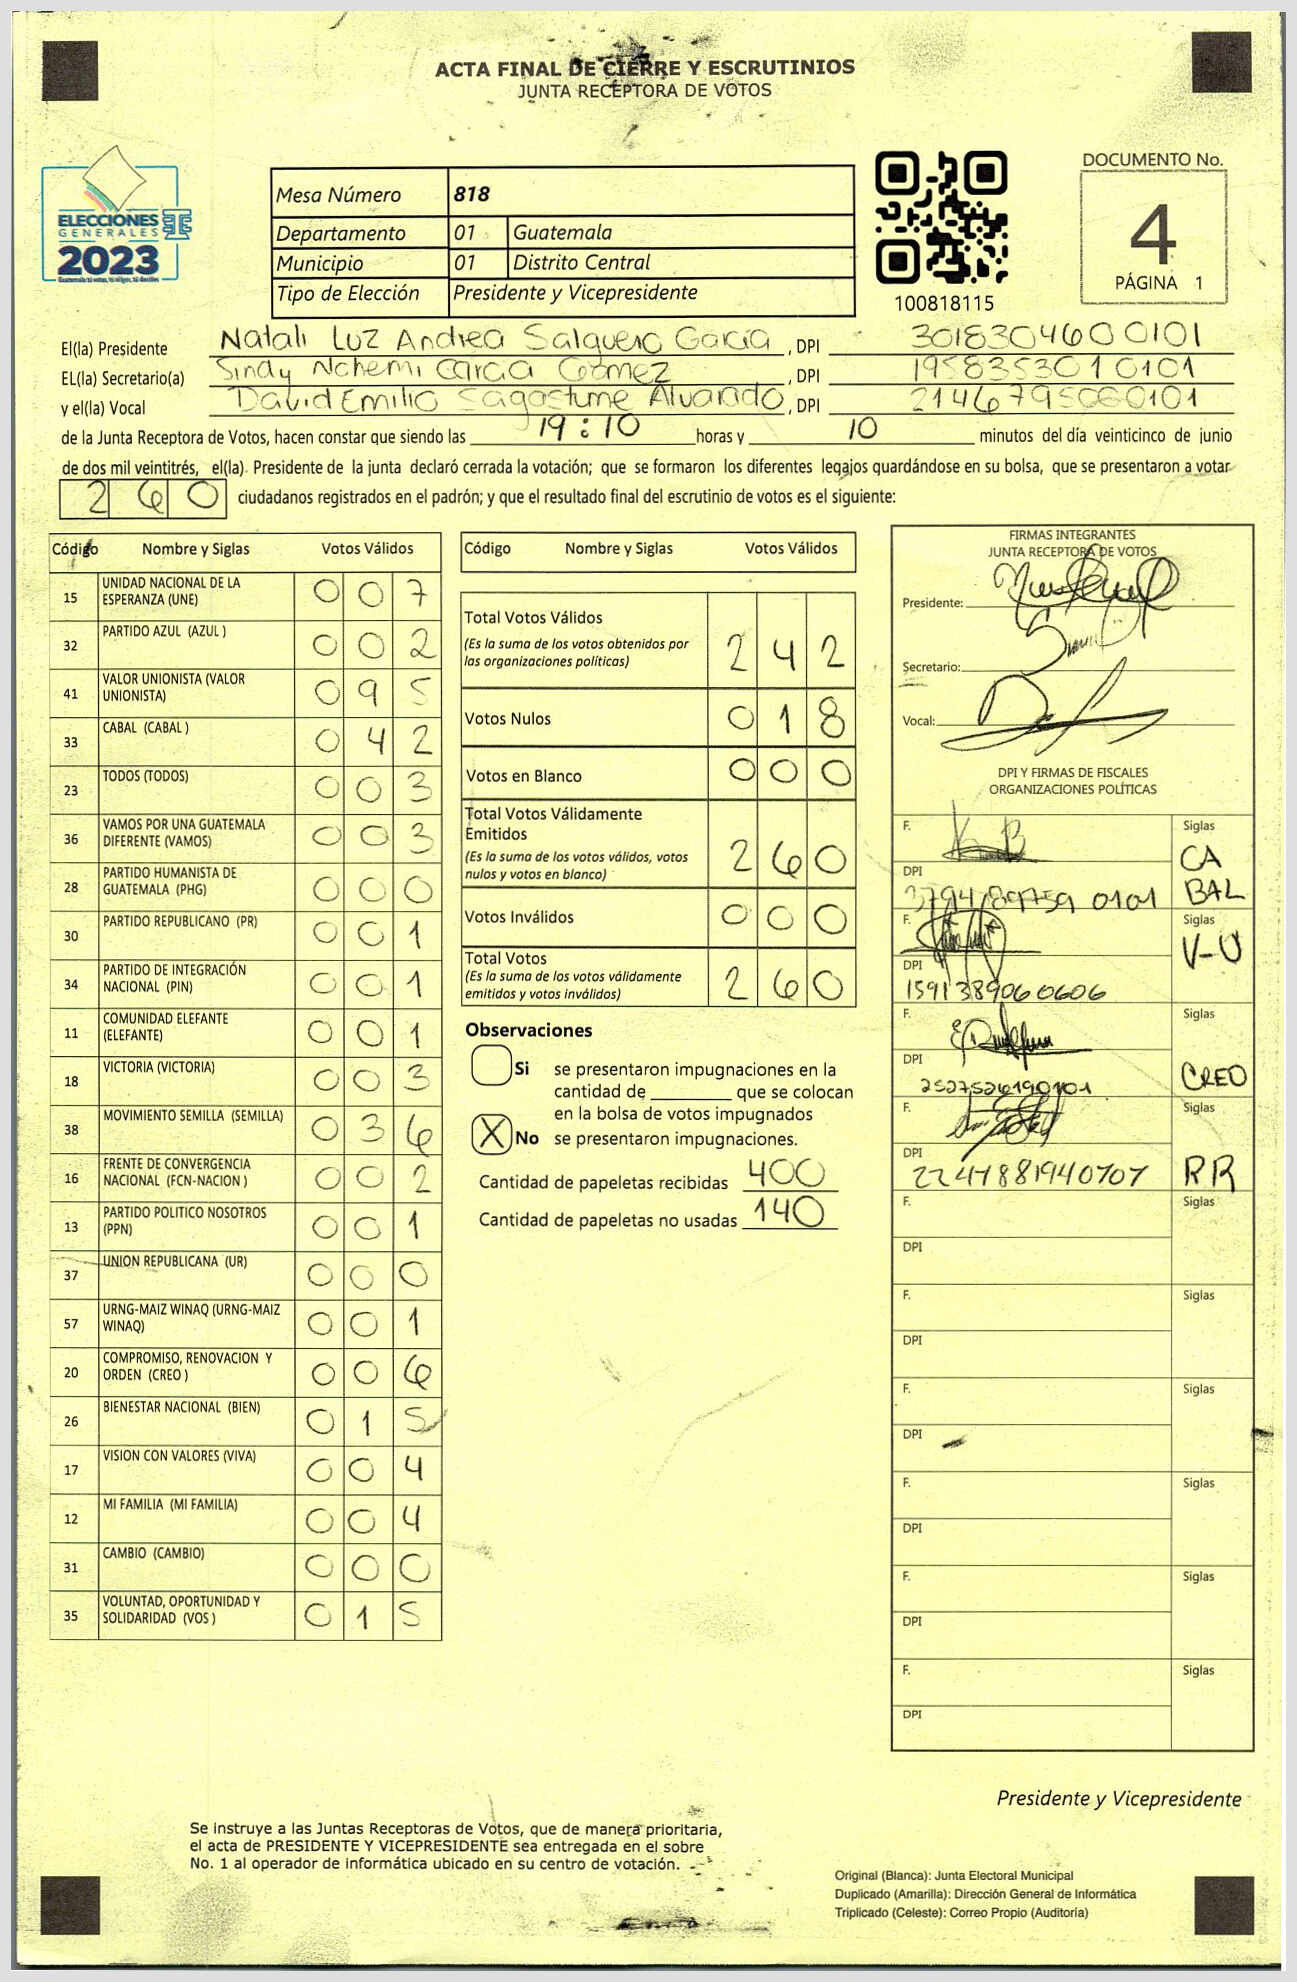 ACTA FINAL DE CIERRE Y ESCRUTINIOS
JUNTA RECEPTORA DE VOTOS
ELECCIONES
GENERALES
2023
Mesa Número 818
Departamento 01 Guatemala
Municipio 01 Distrito Central
Tipo de Elección Presidente y Vicepresidente
100818115
DOCUMENTO No.
4
PÁGINA 1
El(la) Presidente Natali Luz Andrea Salguero Garcia, DPI 3018304600101
EL(la) Secretario(a) Sindy Nohemi Garcia Gomez, DPI 1958353010101
y el(la) Vocal David Emilio Sagastume Alvarado, DPI
de la Junta Receptora de Votos, hacen constar que siendo las 19:10 horas y 10 minutos del día veinticinco de junio
de dos mil veintitrés, el(la) Presidente de la junta declaró cerrada la votación; que se formaron los diferentes legajos guardándose en su bolsa, que se presentaron a votar
260 ciudadanos registrados en el padrón; y que el resultado final del escrutinio de votos es el siguiente:
Código Nombre y Siglas Votos Válidos
15 UNIDAD NACIONAL DE LA ESPERANZA (UNE) 0 0 7
32 PARTIDO AZUL (AZUL ) 0 0 2
41 VALOR UNIONISTA (VALOR UNIONISTA) 0 9 5
33 CABAL (CABAL ) 0 4 2
23 TODOS (TODOS) 0 0 3
36 VAMOS POR UNA GUATEMALA DIFERENTE (VAMOS) 0 0 3
28 PARTIDO HUMANISTA DE GUATEMALA (PHG) 0 0 0
30 PARTIDO REPUBLICANO (PR) 0 0 1
34 PARTIDO DE INTEGRACIÓN NACIONAL (PIN) 0 0 1
11 COMUNIDAD ELEFANTE (ELEFANTE) 0 0 1
18 VICTORIA (VICTORIA) 0 0 3
38 MOVIMIENTO SEMILLA (SEMILLA) 0 3 6
16 FRENTE DE CONVERGENCIA NACIONAL (FCN-NACION ) 0 0 2
13 PARTIDO POLITICO NOSOTROS (PPN) 0 0 1
37 UNION REPUBLICANA (UR) 0 0 0
57 URNG-MAIZ WINAQ (URNG-MAIZ WINAQ) 0 0 1
20 COMPROMISO, RENOVACION Y ORDEN (CREO ) 0 0 6
26 BIENESTAR NACIONAL (BIEN) 0 1 5
17 VISION CON VALORES (VIVA) 0 0 4
12 MI FAMILIA (MI FAMILIA) 0 0 4
31 CAMBIO (CAMBIO) 0 0 0
35 VOLUNTAD, OPORTUNIDAD Y SOLIDARIDAD (VOS ) 0 1 5
Código Nombre y Siglas Votos Válidos
Total Votos Válidos 2 4 2
(Es la suma de los votos obtenidos por
las organizaciones políticas)
Votos Nulos 0 1 8
Votos en Blanco 0 0 0
Total Votos Válidamente
Emitidos 2 6 0
(Es la suma de los votos válidos, votos
nulos y votos en blanco)
Votos Inválidos 0 0 0
Total Votos 2 6 0
(Es la suma de los votos válidamente
emitidos y votos inválidos)
Observaciones
Si se presentaron impugnaciones en la
cantidad de ________ que se colocan
en la bolsa de votos impugnados
X No se presentaron impugnaciones.
Cantidad de papeletas recibidas 400
Cantidad de papeletas no usadas 140
FIRMAS INTEGRANTES
JUNTA RECEPTORA DE VOTOS
Presidente:
Secretario:
Vocal:
DPI Y FIRMAS DE FISCALES
ORGANIZACIONES POLÍTICAS
F. Siglas
CA
BAL
DPI
F. Siglas
V-U
DPI
1591389060606
F. Siglas
CREO
DPI
2527526190101
F. Siglas
RR
DPI
2247881940707
F. Siglas
DPI
F. Siglas
DPI
F. Siglas
DPI
F. Siglas
DPI
F. Siglas
DPI
F. Siglas
DPI
Presidente y Vicepresidente
Se instruye a las Juntas Receptoras de Votos, que de manera prioritaria,
el acta de PRESIDENTE Y VICEPRESIDENTE sea entregada en el sobre
No. 1 al operador de informática ubicado en su centro de votación.
Original (Blanca): Junta Electoral Municipal
Duplicado (Amarilla): Dirección General de Informática
Triplicado (Celeste): Correo Propio (Auditoría)